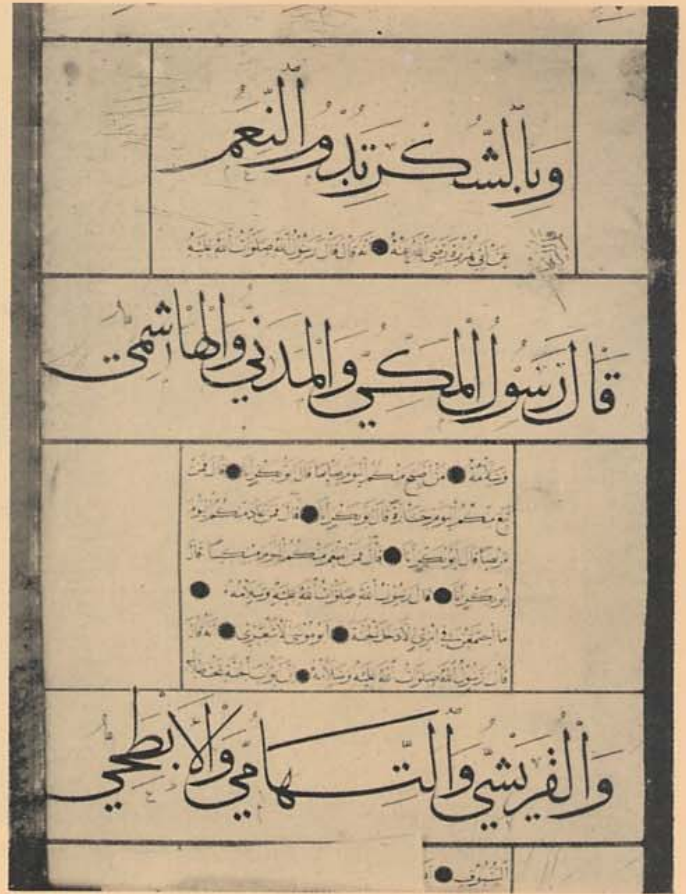 وَبِالشُّكْرِ تَبْدُو النِّعَمُ
عَنْ أَبِي هُرَيْرَةَ رَضِيَ اللهُ عَنْهُ ● أَنَّهُ قَالَ قَالَ رَسُولُ اللهِ صَلَوَاتُ اللهِ عَلَيْهِ
قَالَ رَسُولُ الْمَكِّيِّ وَالْمَدَنِيِّ وَالْهَاشِمِيِّ
وَسَلَامُهُ ● مَنْ أَصْبَحَ مِنْكُمُ الْيَوْمَ صَائِمًا قَالَ أَبُو بَكْرٍ أَنَا ● قَالَ فَمَنْ
تَبِعَ مِنْكُمُ الْيَوْمَ جَنَازَةً قَالَ أَبُو بَكْرٍ أَنَا ● قَالَ فَمَنْ عَادَ مِنْكُمُ الْيَوْمَ
مَرِيضًا قَالَ أَبُو بَكْرٍ أَنَا ● قَالَ فَمَنْ أَطْعَمَ مِنْكُمُ الْيَوْمَ مِسْكِينًا قَالَ
أَبُو بَكْرٍ أَنَا ● قَالَ رَسُولُ اللهِ صَلَوَاتُ اللهِ عَلَيْهِ وَسَلَامُهُ ●
مَا اجْتَمَعْنَ فِي امْرِئٍ إِلَّا دَخَلَ الْجَنَّةَ ● أَبُو مُوسَى الْأَشْعَرِيُّ ● أَنَّهُ قَالَ
قَالَ رَسُولُ اللهِ صَلَوَاتُ اللهِ عَلَيْهِ وَسَلَامُهُ ● إِنَّ أَبْوَابَ الْجَنَّةِ تَحْتَ ظِلَالِ
وَالْقُرَيْشِيِّ وَالتِّهَامِيِّ وَالْأَبْطَحِيِّ
السُّيُوفِ ●